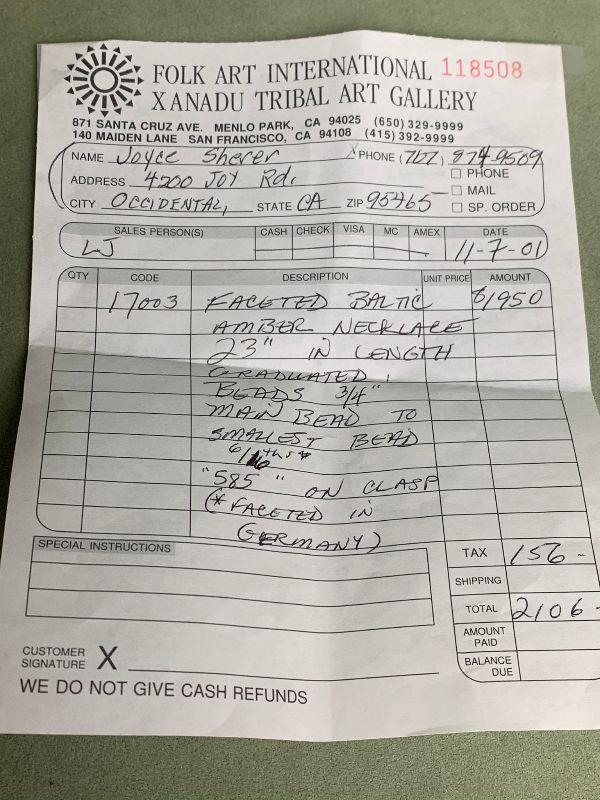 FOLK ART INTERNATIONAL 118508
XANADU TRIBAL ART GALLERY
871 SANTA CRUZ AVE. MENLO PARK, CA 94025 (650) 329-9999
140 MAIDEN LANE SAN FRANCISCO, CA 94108 (415) 392-9999
NAME Joyce Sherer X PHONE (707) 874-9509
ADDRESS 4200 JOY Rd. PHONE
MAIL
CITY OCCIDENTAL, STATE CA ZIP 95465 SP. ORDER
SALES PERSON(S) CASH CHECK VISA MC AMEX DATE
LJ 11-7-01
QTY CODE DESCRIPTION UNIT PRICE AMOUNT
17003 FACETED BALTIC $1950
AMBER NECKLACE
23" IN LENGTH
GRADUATED,
BEADS 3/4"
MAIN BEAD TO
SMALLEST BEAD
6/16ths"
"585" ON CLASP
(*FACETED IN
GERMANY)
SPECIAL INSTRUCTIONS
TAX 156-
SHIPPING
TOTAL 2106-
AMOUNT PAID
BALANCE DUE
CUSTOMER
SIGNATURE X
WE DO NOT GIVE CASH REFUNDS